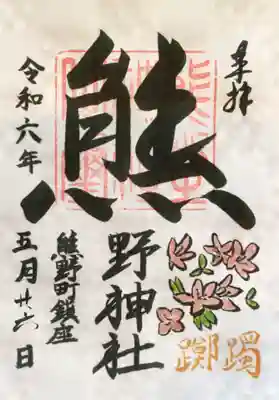 奉拝
熊野神社
躑躅
熊野町鎮座
令和六年
五月廿六日